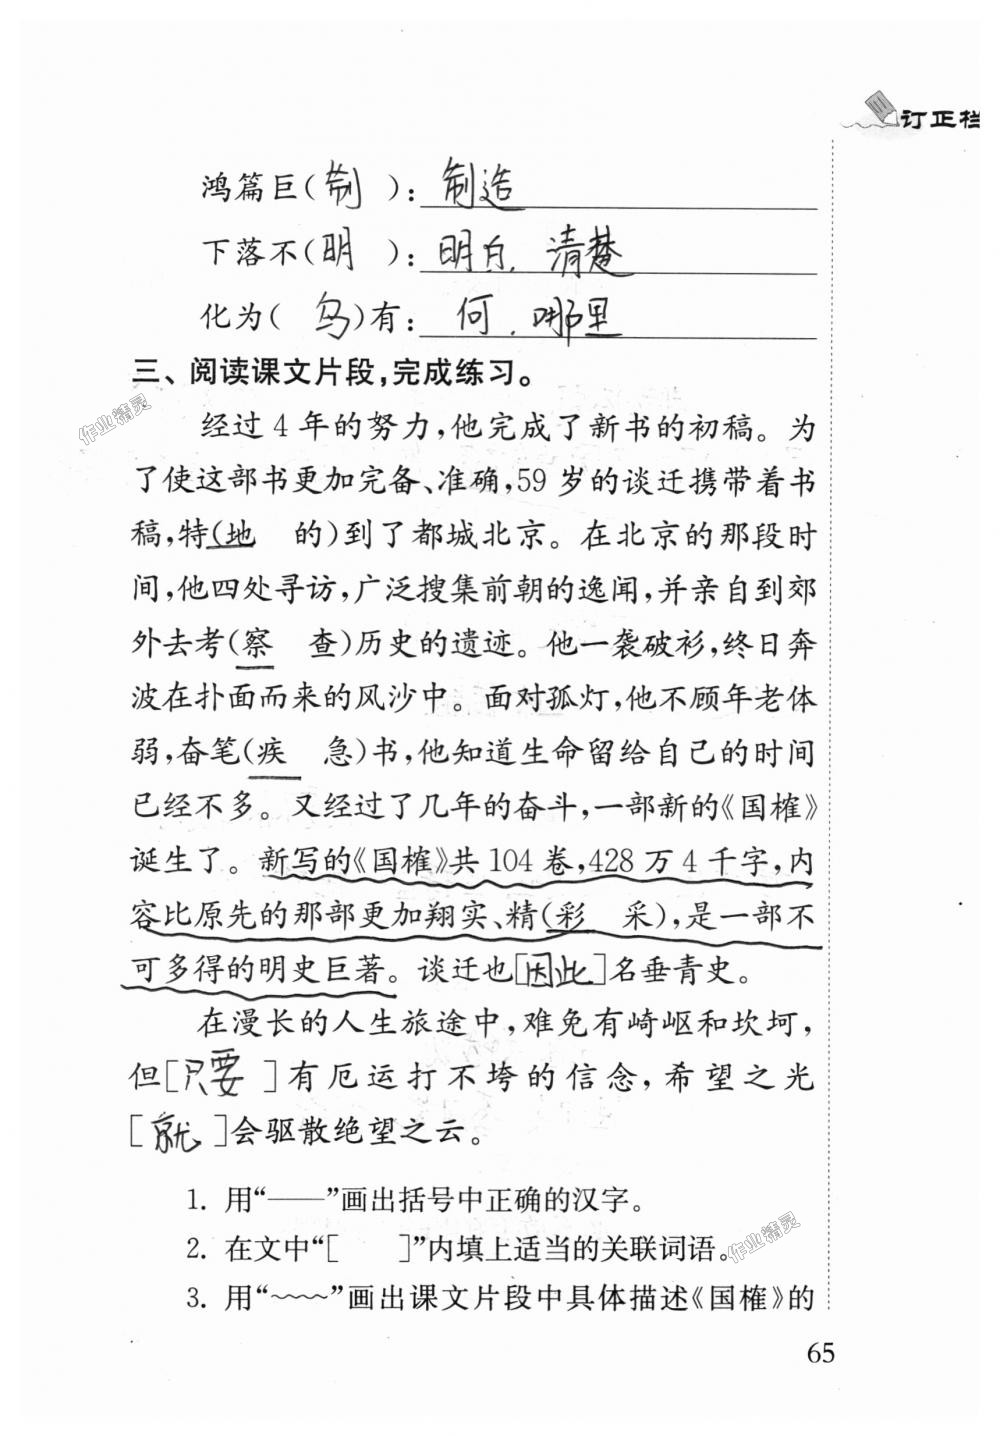 订正栏
鸿篇巨(制 ):制造
下落不(明 ):明白,清楚
化为( 乌)有:何,哪里
三、阅读课文片段,完成练习。
经过4年的努力,他完成了新书的初稿。为
了使这部书更加完备、准确,59岁的谈迁携带着书
稿,特(地 的)到了都城北京。在北京的那段时
间,他四处寻访,广泛搜集前朝的逸闻,并亲自到郊
外去考(察 查)历史的遗迹。他一袭破衫,终日奔
波在扑面而来的风沙中。面对孤灯,他不顾年老体
弱,奋笔(疾 急)书,他知道生命留给自己的时间
已经不多。又经过了几年的奋斗,一部新的《国榷》
诞生了。新写的《国榷》共104卷,428万4千字,内
容比原先的那部更加翔实、精(彩 采),是一部不
可多得的明史巨著。谈迁也[因此]名垂青史。
在漫长的人生旅途中,难免有崎岖和坎坷,
但[只要 ]有厄运打不垮的信念,希望之光
[就 ]会驱散绝望之云。
1. 用“——”画出括号中正确的汉字。
2. 在文中“[ ]”内填上适当的关联词语。
3. 用“~~~~”画出课文片段中具体描述《国榷》的
65
作业精灵
作业精灵